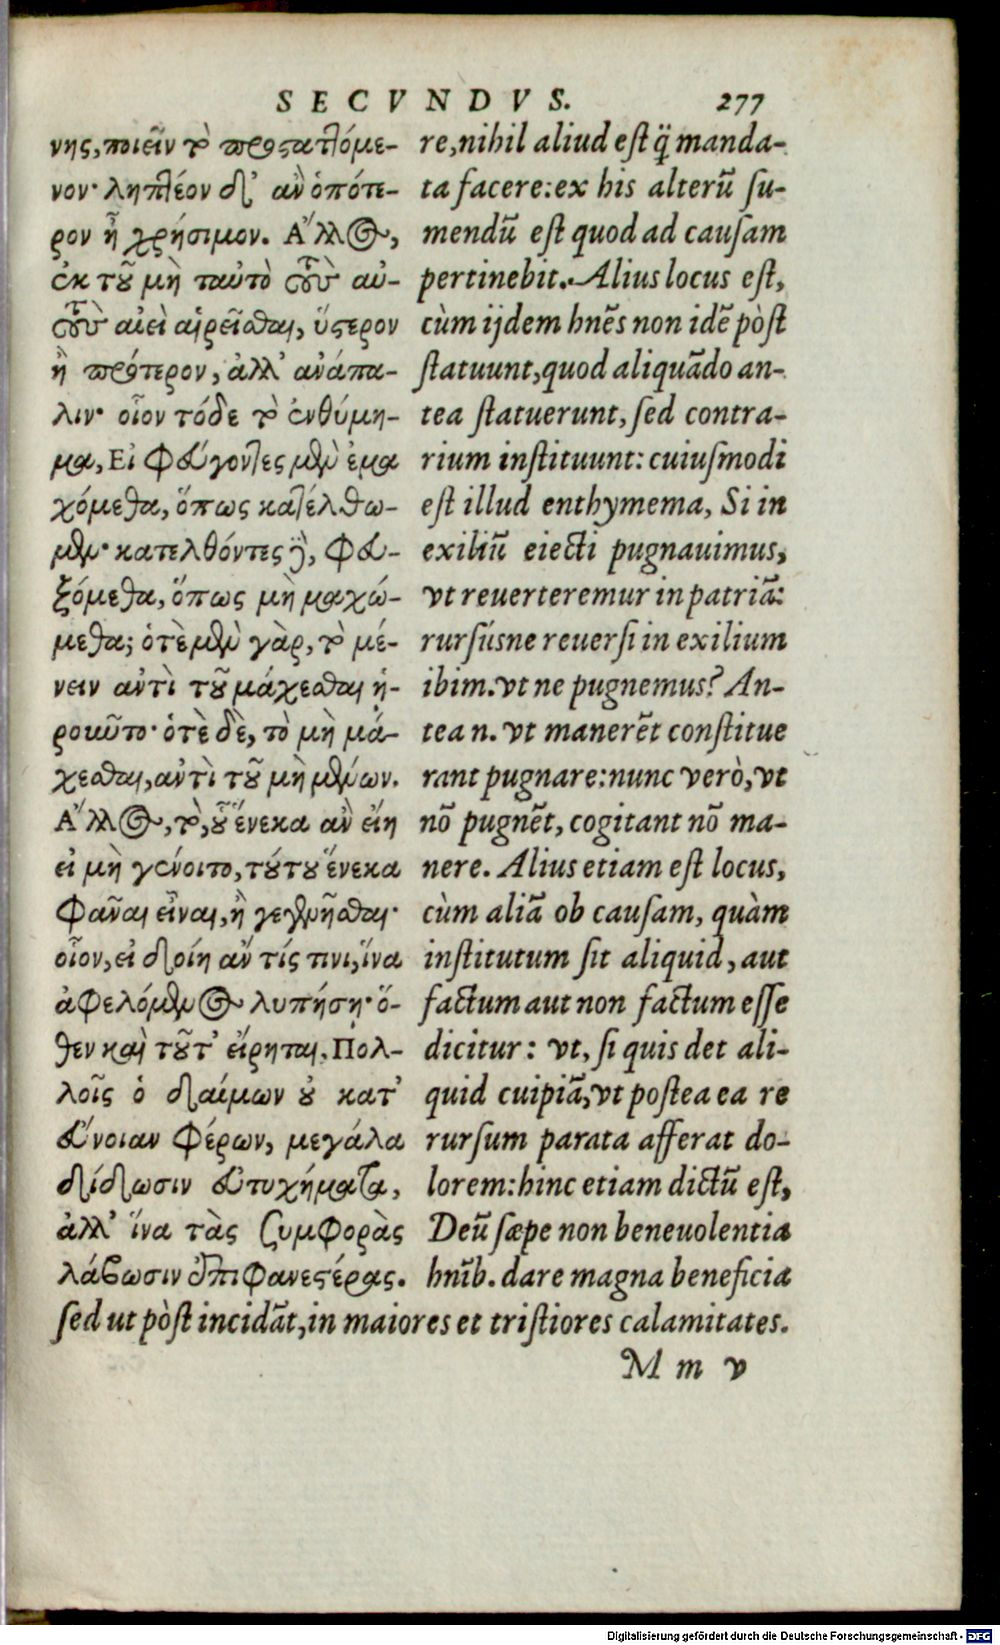 SECVNDVS. 277
νης, ποιεῖν τὸ προσταττόμε-
νον· ληπτέον δ' ἂν ὁπότε-
ρον ᾖ χρήσιμον. Ἄλλος,
ἐκ τοῦ μὴ ταὐτὸ τοὺς αὐ-
τοὺς αἰεὶ αἱρεῖσθαι, ὕστερον
ἢ πρότερον, ἀλλ' ἀνάπα-
λιν· οἷον τόδε τὸ ἐνθύμη-
μα, Εἰ φεύγοντες μὲν ἐμα
χόμεθα, ὅπως κατέλθω-
μεν· κατελθόντες δὲ, φευ-
ξόμεθα, ὅπως μὴ μαχώ-
μεθα; ὁτὲ μὲν γὰρ, τὸ μέ-
νειν ἀντὶ τοῦ μάχεσθαι ᾑ-
ροῦντο· ὁτὲ δὲ, τὸ μὴ μά-
χεσθαι, ἀντὶ τοῦ μὴ μένων.
Ἄλλος, τὸ, οὗ ἕνεκα ἂν εἴη
εἰ μὴ γένοιτο, τούτου ἕνεκα
φάναι εἶναι, ἢ γεγενῆσθαι·
οἷον, εἰ δοίη ἄν τίς τινι, ἵνα
ἀφελόμενος λυπήσῃ· ὅ-
θεν καὶ τοῦτ' εἴρηται, Πολ-
λοῖς ὁ δαίμων οὐ κατ'
εὔνοιαν φέρων, μεγάλα
δίδωσιν εὐτυχήματα,
ἀλλ' ἵνα τὰς ξυμφορὰς
λάβωσιν ἐπιφανεστέρας.
re, nihil aliud est q̃ manda-
ta facere: ex his alterũ su-
mendũ est quod ad causam
pertinebit. Alius locus est,
cùm ijdem hnẽs non idẽ pòst
statuunt, quod aliquãdo an-
tea statuerunt, sed contra-
rium instituunt: cuiusmodi
est illud enthymema, Si in
exiliũ eiecti pugnauimus,
vt reuerteremur in patriã:
rursúsne reuersi in exilium
ibim. vt ne pugnemus? An-
tea n. vt manerẽt constitue
rant pugnare: nunc verò, vt
nõ pugnẽt, cogitant nõ ma-
nere. Alius etiam est locus,
cùm aliã ob causam, quàm
institutum sit aliquid, aut
factum aut non factum esse
dicitur: vt, si quis det ali-
quid cuipiã, vt postea ea re
rursum parata afferat do-
lorem: hinc etiam dictũ est,
Deũ sæpe non beneuolentia
hnĩb. dare magna beneficia
sed ut pòst incidãt, in maiores et tristiores calamitates.
M m v
Digitalisierung gefördert durch die Deutsche Forschungsgemeinschaft - DFG